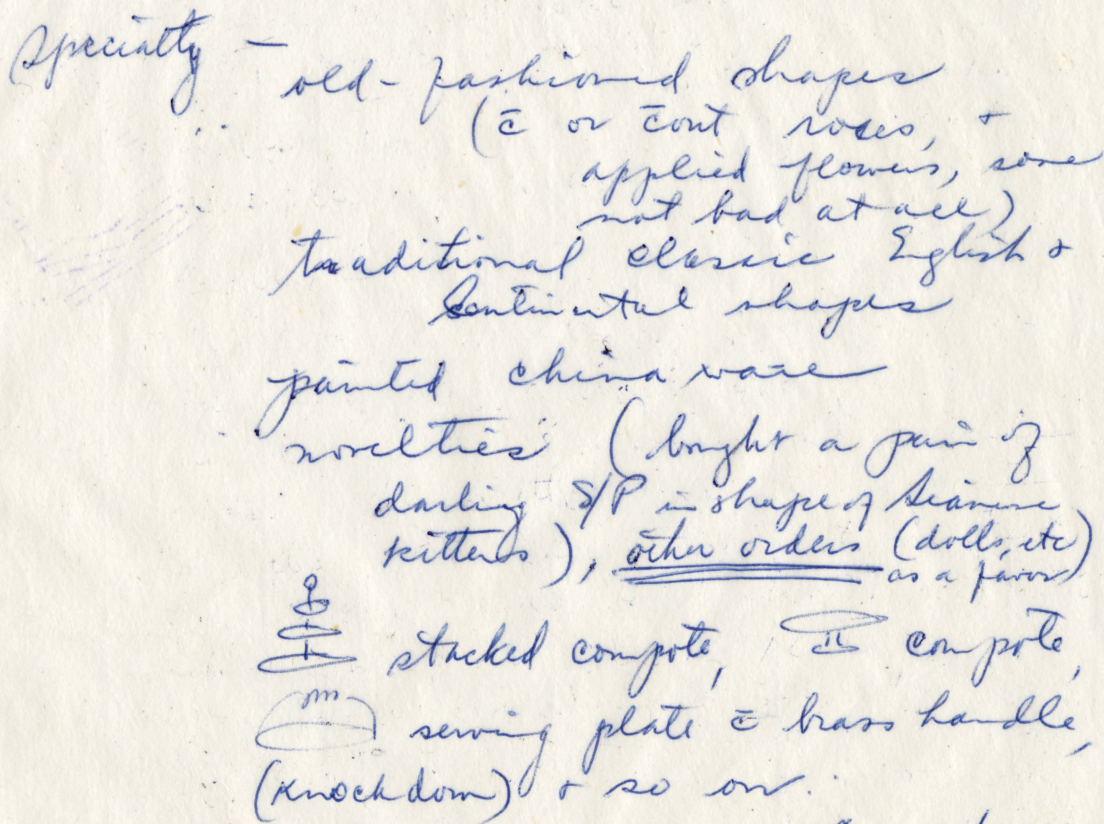 specialty —
old-fashioned shapes
(c̄ or c̄out roses, +
applied flowers, some
not bad at all)
traditional classic English +
Continental shapes
painted china ware
novelties (bought a pair of
darling S/P in shape of Siamese
kittens), other orders (dolls, etc
as a favor)
stacked compote, compote,
serving plate c̄ brass handle,
(knockdown) + so on.